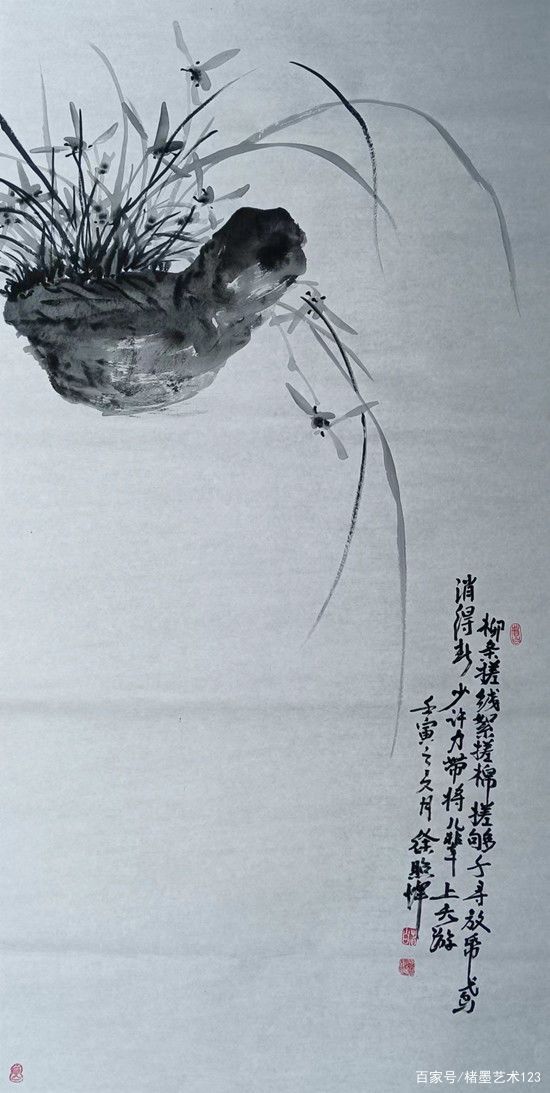 柳条搓线絮搓棉搓够千寻放帋鸢
消得少许力带将儿辈上天游
壬寅之冬月 徐
百家号/楮墨艺术123